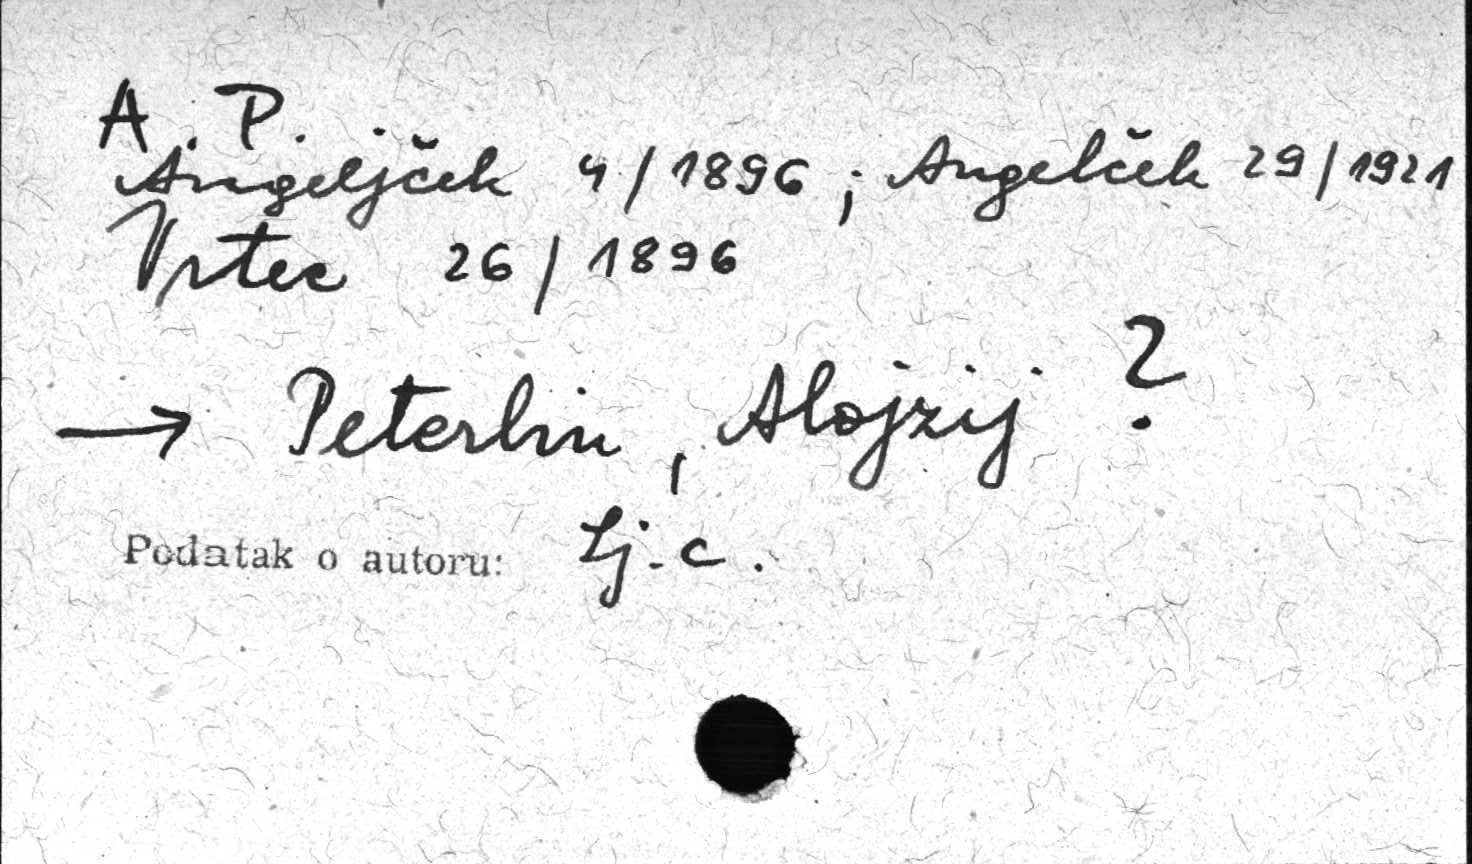 A. P.
Angeljček 4/1896; Angelček 29/1921
Vrtec 26/1896
→ Peterlin, Alojzij ?
Podatak o autoru: Lj. c.